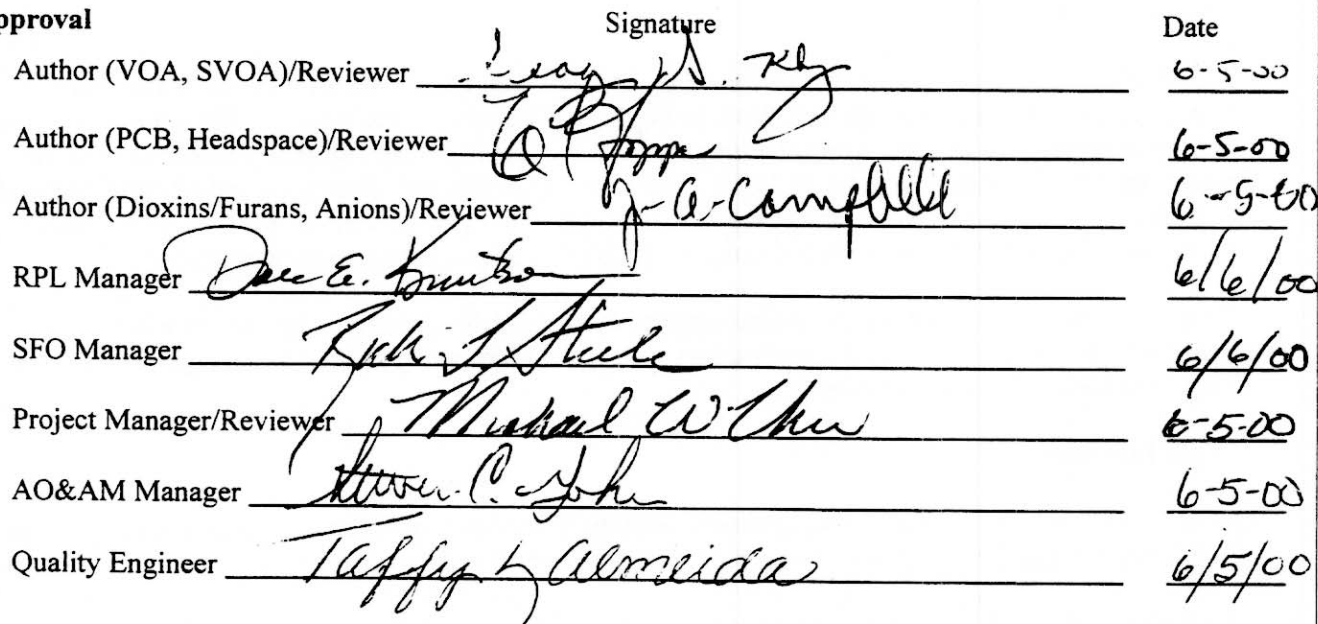 pproval Signature Date
Author (VOA, SVOA)/Reviewer 6-5-00
Author (PCB, Headspace)/Reviewer 6-5-00
Author (Dioxins/Furans, Anions)/Reviewer J-A-Campbell 6-5-00
RPL Manager E. 6/6/00
SFO Manager Steele 6/6/00
Project Manager/Reviewer Michael W 6-5-00
AO&AM Manager C. 6-5-00
Quality Engineer Taffy L Almeida 6/5/00